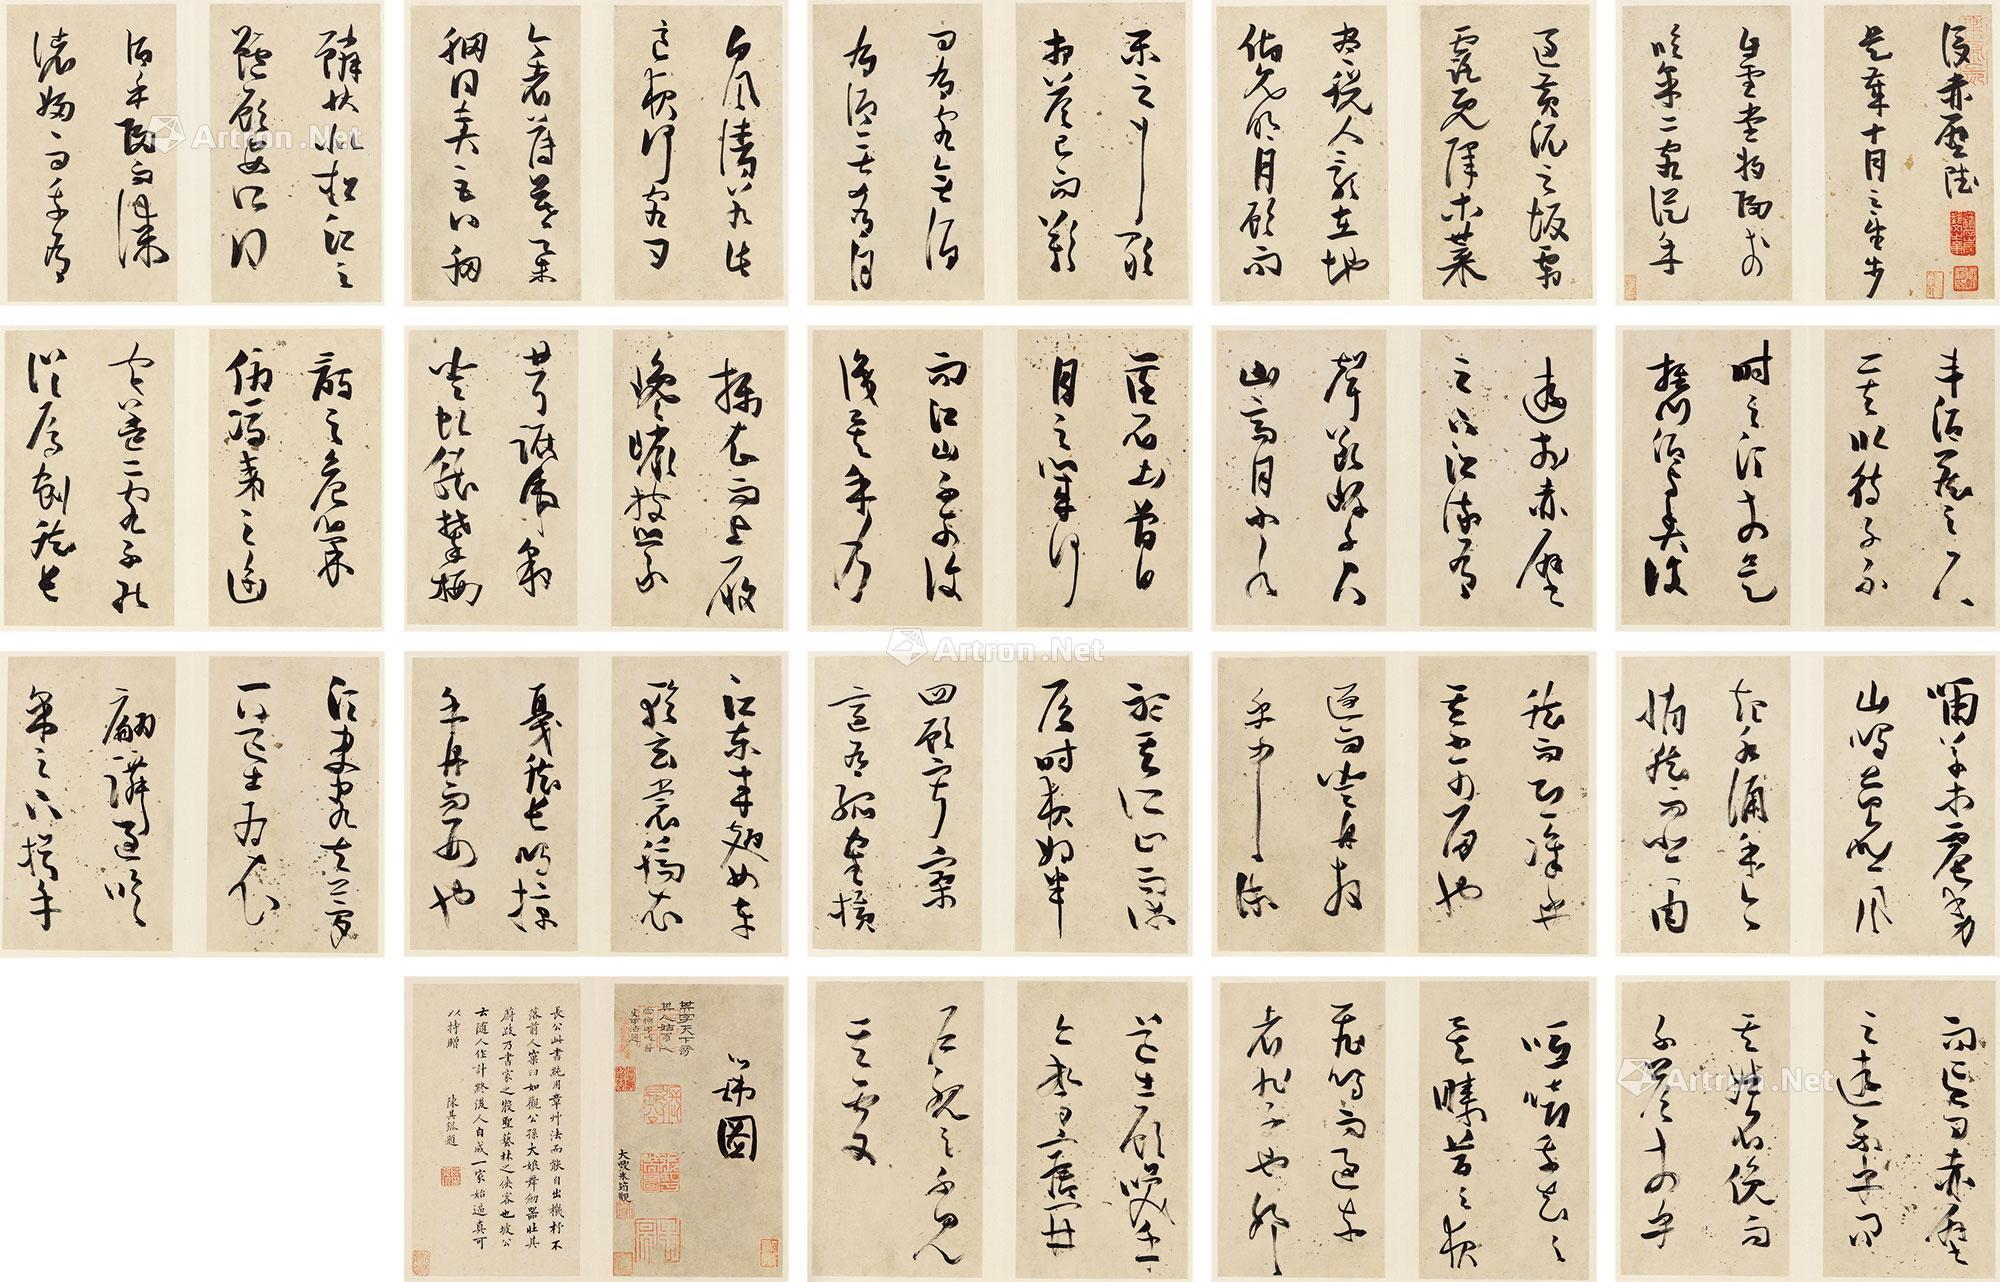 後赤壁賦
是歲十月之望步
自雪堂將歸於
臨皋二客從予
過黃泥之坂霜
露既降木葉
盡脫人影在地
仰見明月顧而
樂之行歌
相答已而歎
曰有客無酒
有酒無肴月
白風清如此
良夜何客曰
今者薄暮舉
網得魚巨口細
鱗狀似松江之
鱸顧安所得
酒乎歸而謀
諸婦曰我有
斗酒藏之久
矣以待子不
時之須於是
攜酒與魚復
遊於赤壁
之下江流有
聲斷岸千尺
山高月小水
落石出曾日
月之幾何
而江山不可復
識矣予乃
攝衣而上履
巉巖披蒙
茸踞虎豹
登虬龍攀栖
鶻之危巢
俯馮夷之幽
宮蓋二客不能
從焉劃然長
嘯草木震動
山鳴谷應風
起水涌予亦
悄然而悲肅
然而恐凜乎
其不可留也
返而登舟放
乎中流聽
其所止而休
焉時夜將半
四顧寂寥
適有孤鶴橫
江東來翅如車
輪玄裳縞衣
戛然長鳴掠
予舟而西也
須臾客去夢
一道士羽衣
翩躚過臨
皋之下揖予
而言曰赤壁
之遊樂乎問
其姓名俛而
不答嗚呼
噫嘻我知之
矣疇昔之夜
飛鳴而過我
者非子也耶
道士顧笑予
亦驚悟開
戶視之不見
其處
大興朱筠觀
長公此書純用章艸法而能自出機杼不
落前人窠臼如觀公孫大娘舞劍器旺其
蔚跂乃書家之散聖藝林之俠客也坡公
云隨人作計終後人自成一家始逼真可
以持贈 陳其錕題
Artron.Net
Artron.Net
Artron.Net